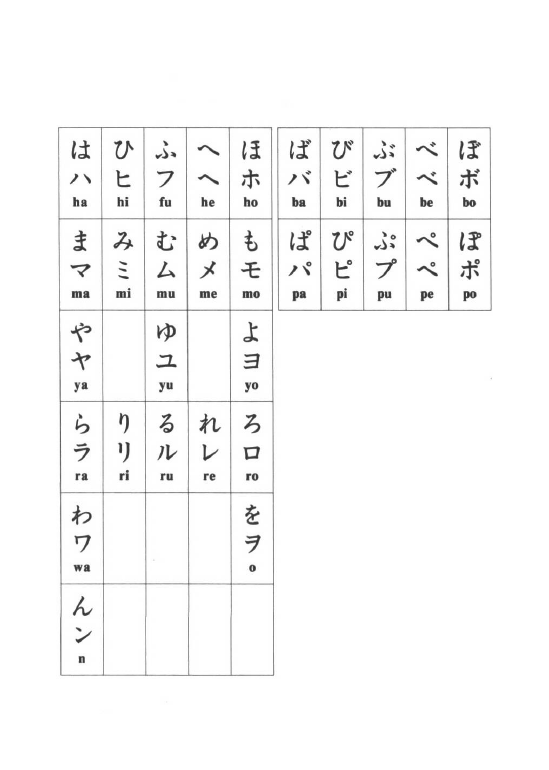 は ひ ふ へ ほ ば び ぶ べ ぼ
ハ ヒ フ ヘ ホ バ ビ ブ ベ ボ
ha hi fu he ho ba bi bu be bo
ま み む め も ぱ ぴ ぷ ぺ ぽ
マ ミ ム メ モ パ ピ プ ペ ポ
ma mi mu me mo pa pi pu pe po
や ゆ よ
ヤ ユ ヨ
ya yu yo
ら り る れ ろ
ラ リ ル レ ロ
ra ri ru re ro
わ を
ワ ヲ
wa o
ん
ン
n